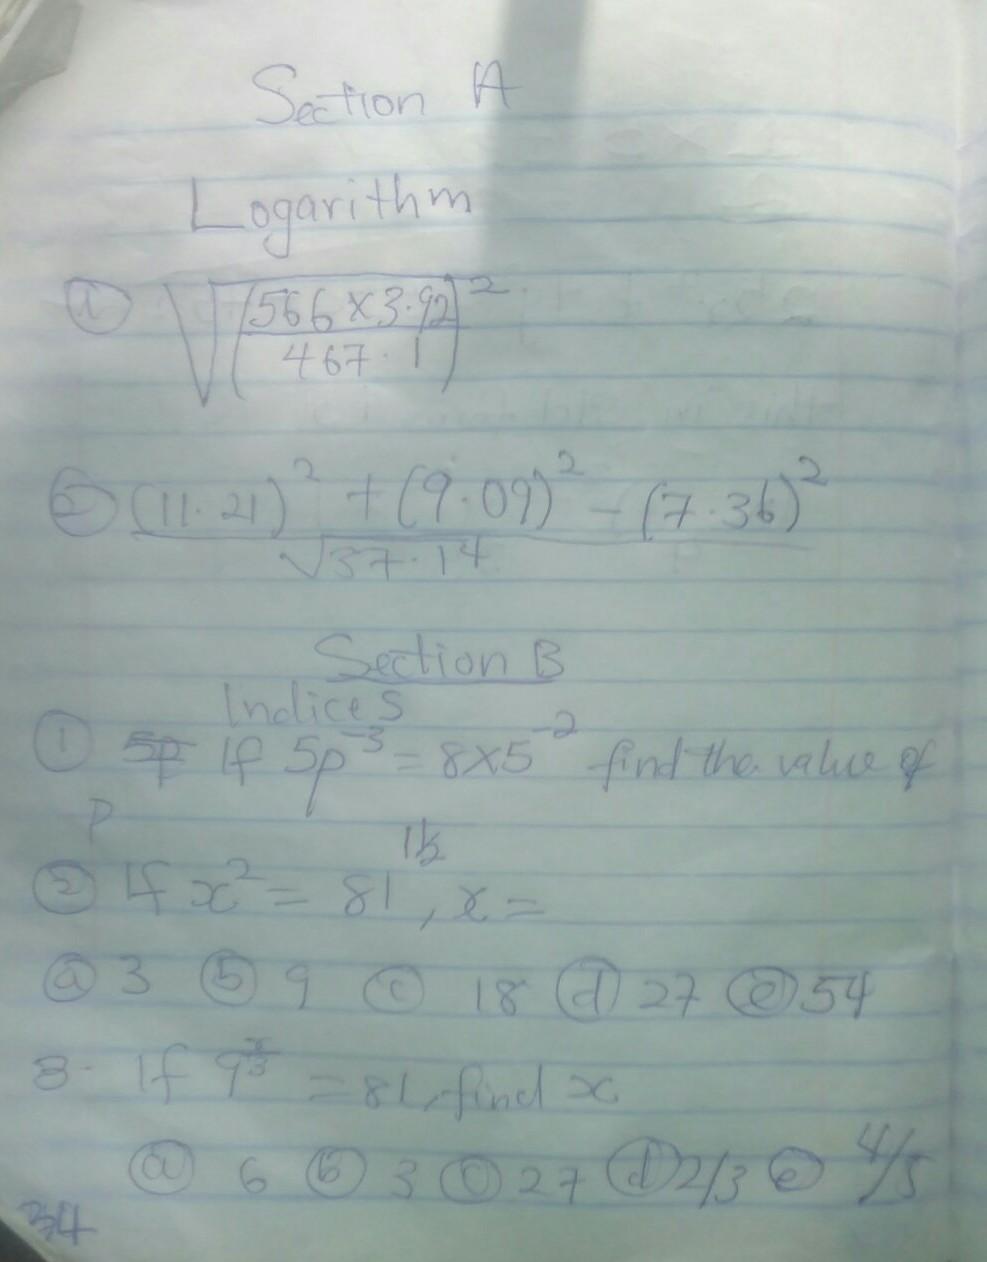 Section A
Logarithm
① √(566 × 3.92 / 467.1)²
② (11.21)² + (9.09)² - (7.36)²
√37.14
Section B
Indices
① 5p If 5p⁻³ = 8×5⁻² find the value of
P
② If x² = 81^1½, x =
ⓐ 3 ⓑ 9 ⓒ 18 ⓓ 27 ⓔ 54
3. If 9^x/3 = 81, find x
ⓐ 6 ⓑ 3 ⓒ 27 ⓓ 2/3 ⓔ 4/5
34